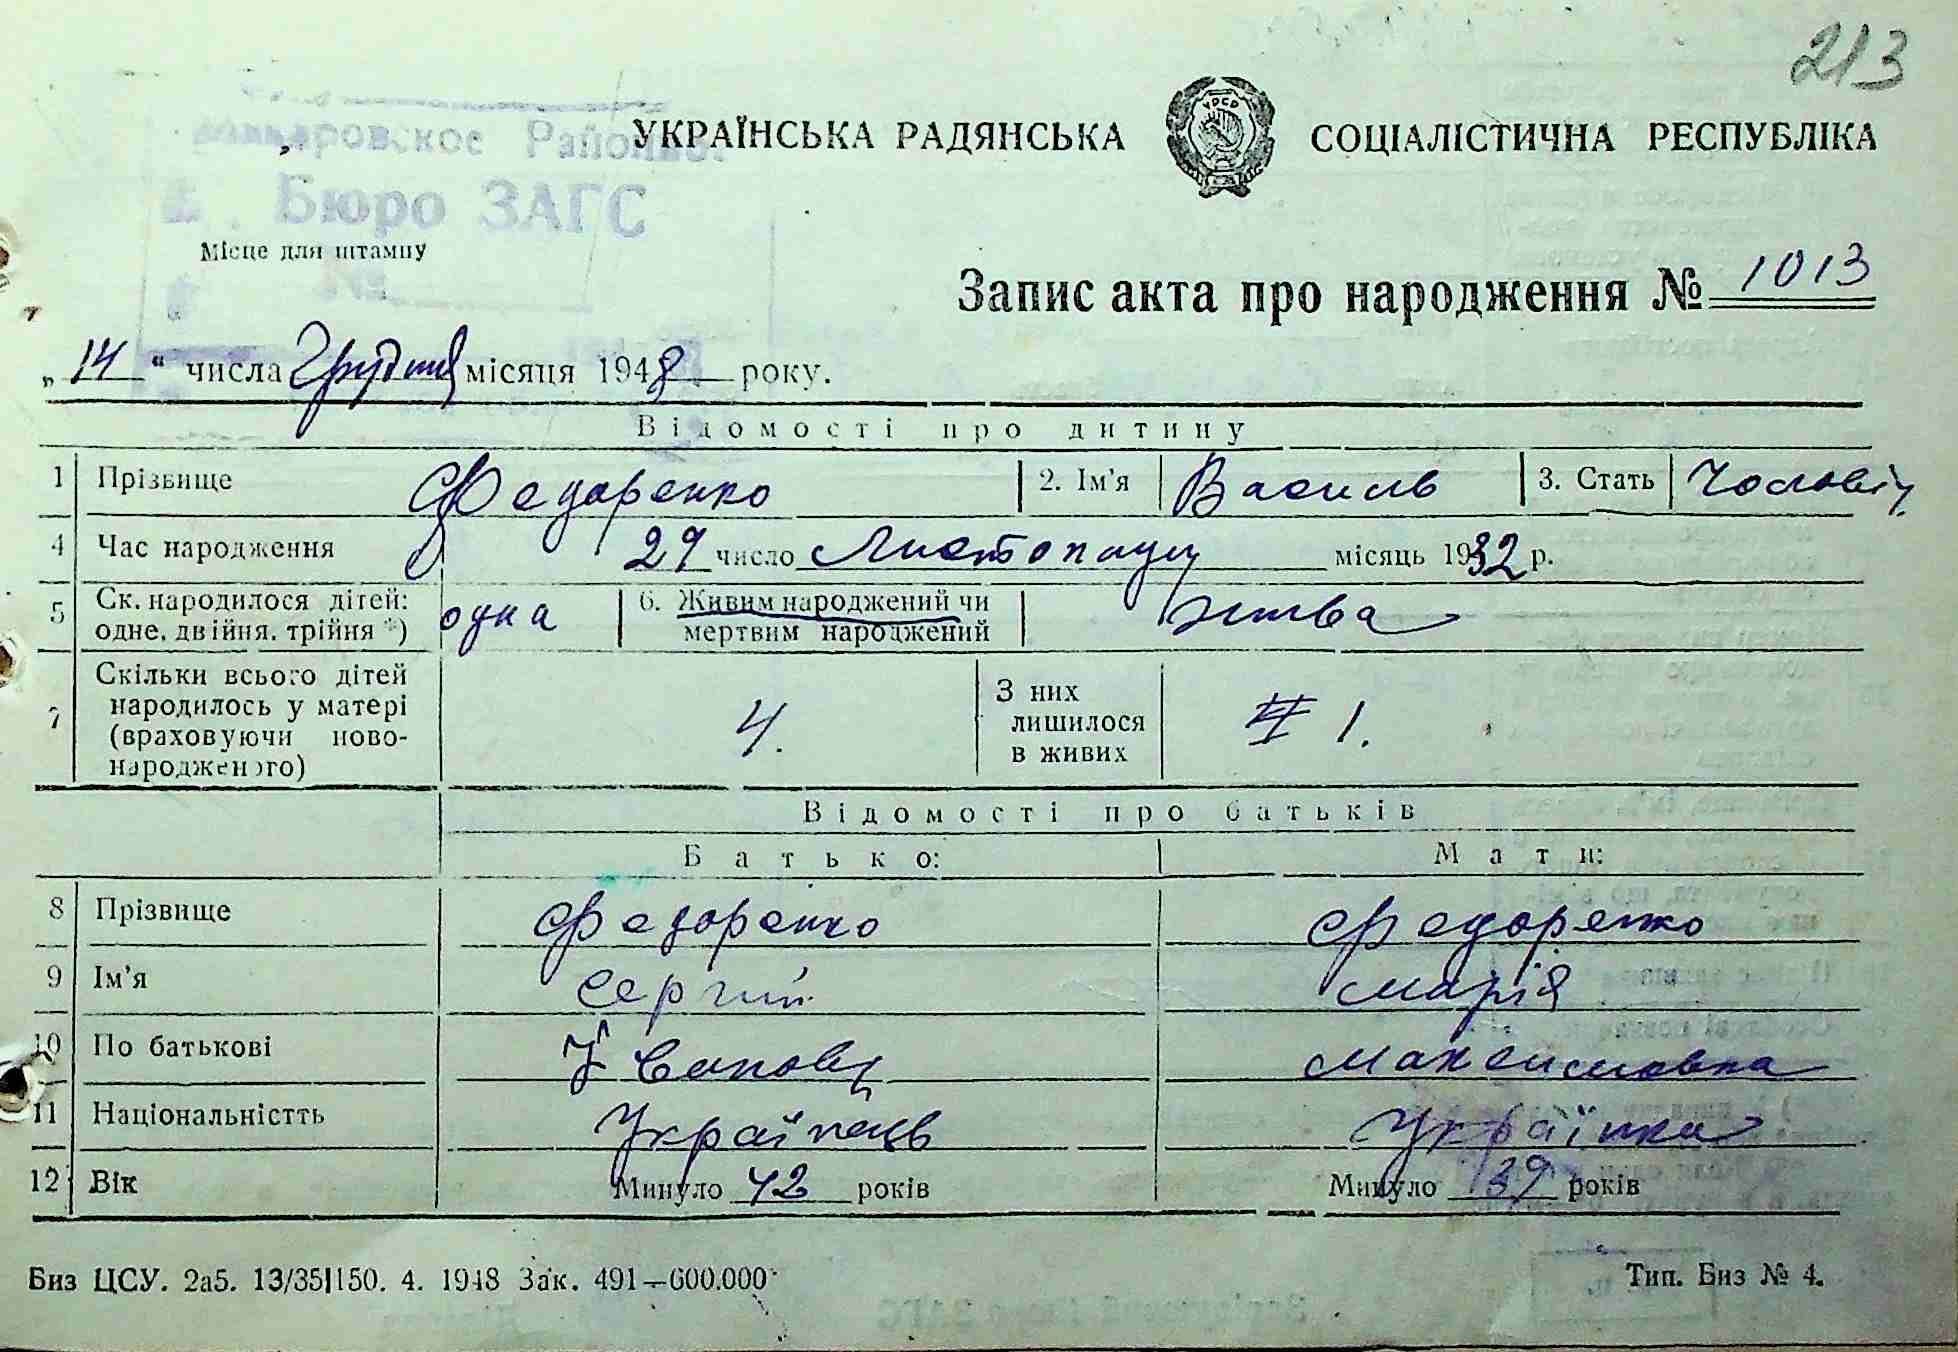 213
Районно
УКРАЇНСЬКА РАДЯНСЬКА СОЦІАЛІСТИЧНА РЕСПУБЛІКА
УРСР
Бюро ЗАГС
Місце для штампу
№
Запис акта про народження № 1013
„14“ числа Грудня місяця 1948 року.
Відомості про дитину
1 Прізвище Федоренко 2. Ім'я Василь 3. Стать Чоловіч.
4 Час народження 29 число Листопаду місяць 1932 р.
5 Ск. народилося дітей: одне, двійня, трійня *) одна 6. Живим народжений чи мертвим народжений жива
7 Скільки всього дітей народилось у матері (враховуючи ново-народженого) 4. З них лишилося в живих 1.
Відомості про батьків
Батько: Мати:
8 Прізвище Федоренко Федоренко
9 Ім'я Сергій Марія
10 По батькові Іванов. Максимовна
11 Національністть Українець Українка
12 Вік Минуло 42 років Минуло 39 років
Биз ЦСУ. 2а5. 13/35|150. 4. 1948 Зак. 491—600.000 Тип. Биз № 4.